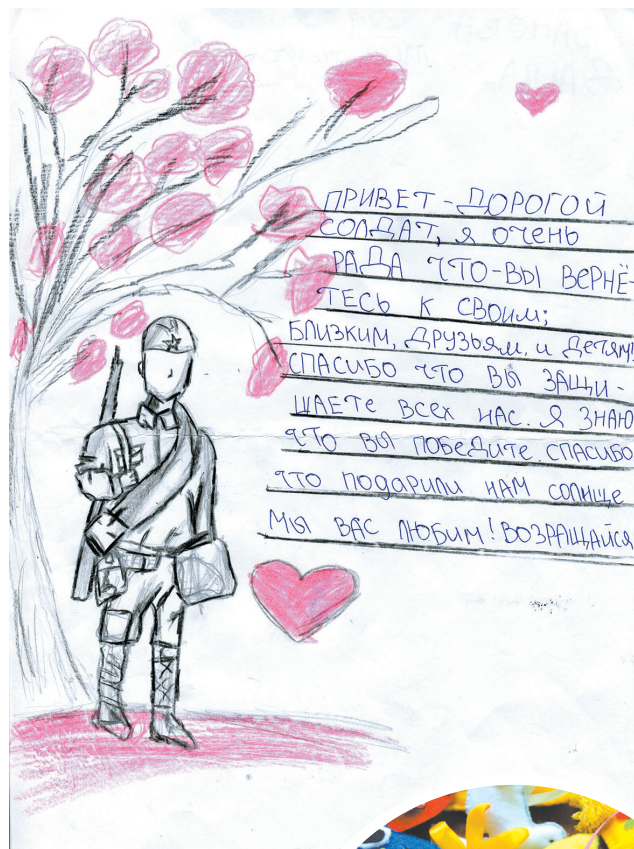 ПРИВЕТ-ДОРОГОЙ
СОЛДАТ, Я ОЧЕНЬ
РАДА ЧТО-ВЫ ВЕРНЁ-
ТЕСЬ К СВОИМ;
БЛИЗКИМ, ДРУЗЬЯМ, И ДЕТЯМ!
СПАСИБО ЧТО ВЫ ЗАЩИ-
ЩАЕТЕ ВСЕХ НАС. Я ЗНАЮ
ЧТО ВЫ ПОБЕДИТЕ. СПАСИБО
ЧТО ПОДАРИЛИ НАМ СОЛНЦЕ
МЫ ВАС ЛЮБИМ! ВОЗРАЩАЙСЯ